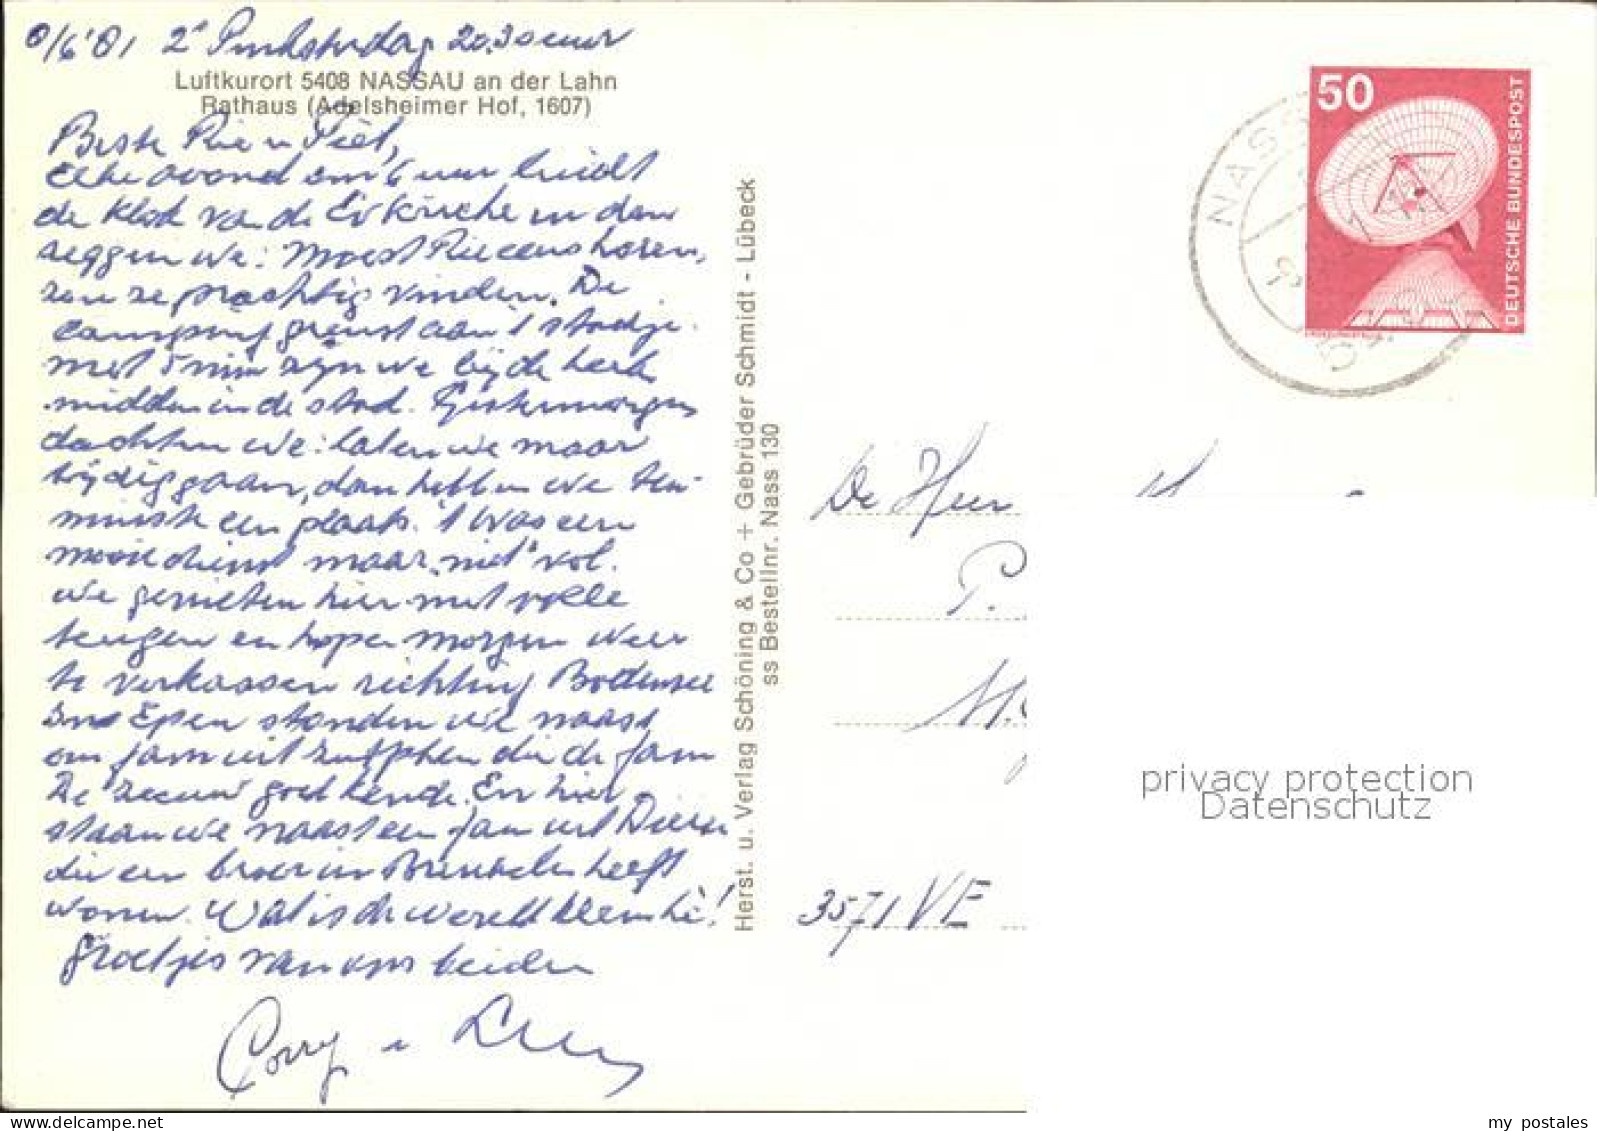 8/6'81 2e Pinksterdag 20.30 uur
Luftkurort 5408 NASSAU an der Lahn
Rathaus (Adelsheimer Hof, 1607)
Beste Rie en Piet,
elke avond om 6 uur luidt
de klok van de Ev Kirche en dan
zeggen we: moest Rie eens horen,
zou ze prachtig vinden. De
camping grenst aan 't stadje.
met 5 min zijn we bij de kerk
midden in de stad. Gistermorgen
dachten we: laten we maar
tijdig gaan, dan hebben we ten-
minste een plaats. 't Was een
mooie dienst maar niet vol.
We genieten hier met volle
teugen en hopen morgen weer
te verkassen richting Bodensee
Epen stonden we naast
een fam uit Zutphen die de fam
De Zeeuw goed kende. En hier
staan we naast een fam uit Dieren
die een broer in heeft
wonen. Wat is de wereld klein hè!
Groetjes van ons beiden
Corry n
Herst. u. Verlag Schöning & Co + Gebrüder Schmidt - Lübeck
ss Bestellnr. Nass 130
50
DEUTSCHE BUNDESPOST
NASS
De Heer
P.
M.
3571 VE
privacy protection
Datenschutz
my postales